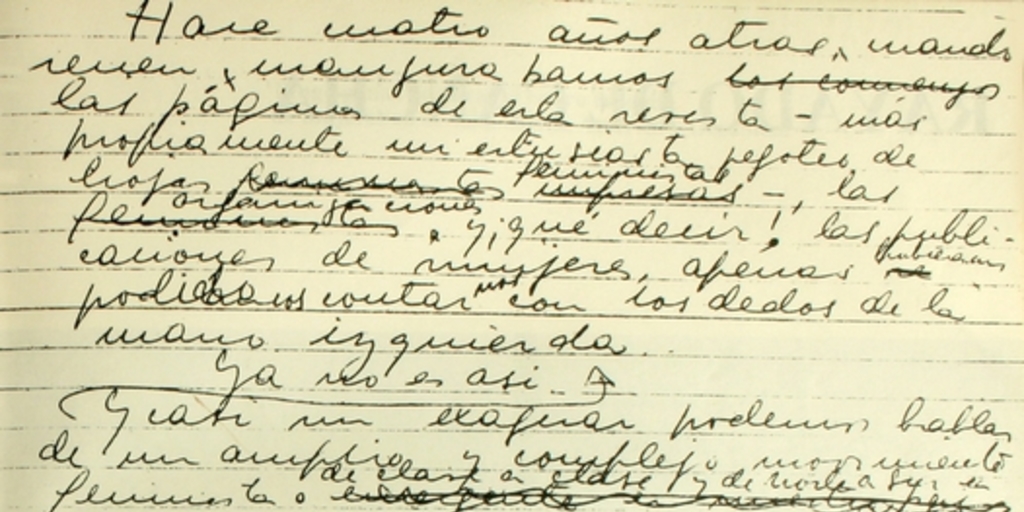 Hace cuatro años atras, cuando
recien inaugurabamos los comienzos
las páginas de esta revista - más
propiamente un entusiasta pegoteo de
feministas
hojas impresas -, las
organizaciones
feministas, y ¡qué decir! las publi-
hubieramos
caciones de mujeres, apenas
nos
contar con los dedos de la
mano izquierda.
Ya no es así.
Y casi sin exagerar podemos hablar
de un amplio y complejo movimiento
de clase a clase y de norte a sur en
feminista o